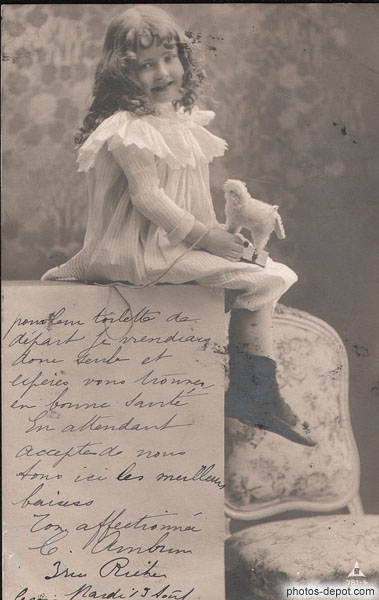 pour leur toilette de
départ je viendrai
donc seule et
espères vous trouver
en bonne santé
En attendant
acceptes de nous
tous ici les meilleurs
baisers
Ton affectionnée
C.
3 rue
Mardi 13 Août
281-3
photos-depot.com